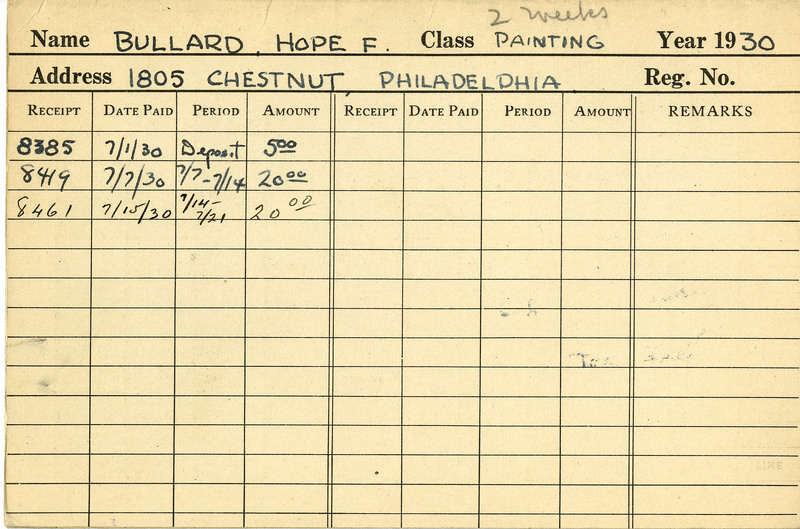 2 weeks
Name BULLARD, HOPE F. Class PAINTING Year 1930
Address 1805 CHESTNUT, PHILADELPHIA Reg. No.
RECEIPT DATE PAID PERIOD AMOUNT RECEIPT DATE PAID PERIOD AMOUNT REMARKS
8385 7/1/30 Deposit 5.00
8419 7/7/30 7/7-7/14 20.00
8461 7/15/30 7/14-7/21 20.00